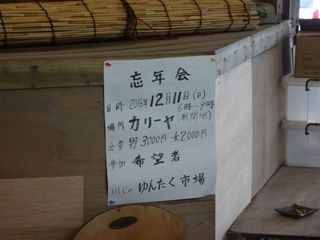 忘年会
日時 2016年12月11日(日)
6時〜9時
場所 カリーヤ(新開地)
会費 男3000円 女2000円
参加 希望者
いしじゃ ゆんたく市場